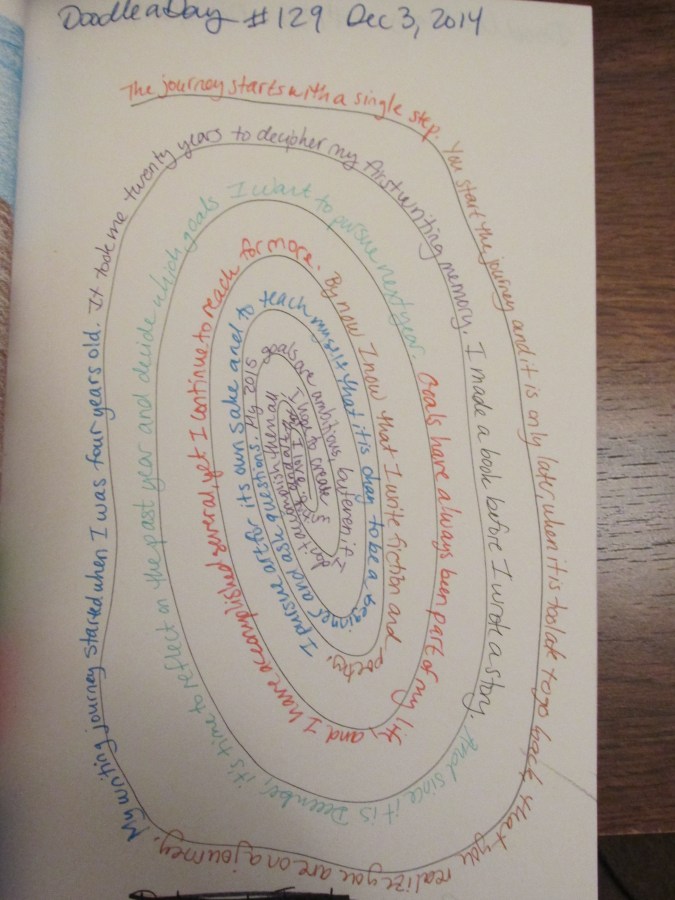 Doodle a Day #129 Dec 3, 2014
The journey starts with a single step.
You start the journey and it is only later, when it is too late to go back, that you realize you are on a journey.
My writing journey started when I was four years old.
It took me twenty years to decipher my first writing memory.
I made a book before I wrote a story.
And since it is December, it's time to reflect on the past year and decide which goals I want to pursue next year.
Goals have always been part of my life and I have accomplished several yet I continue to reach for more.
By now I now that I write fiction and poetry.
I pursue art for its own sake and to teach myself that it is okay to be a beginner and ask questions.
My 2015 goals are ambitious, but even if I don't accomplish them all I hope to create